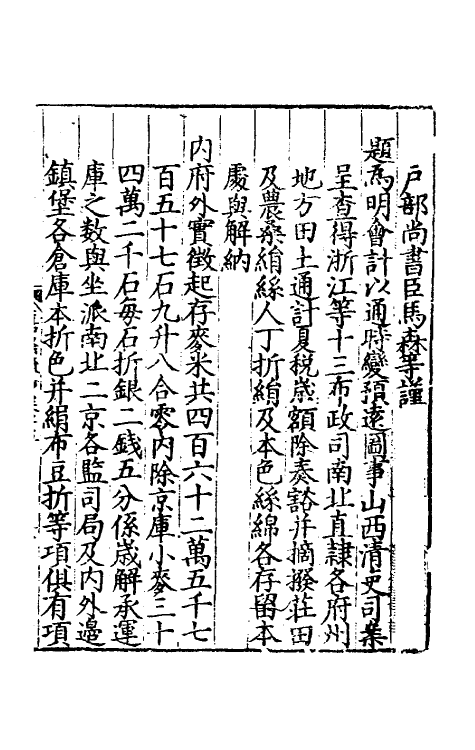 戶部尚書臣馬森等謹
題為明會計以通時變預遠圖事山西清吏司案
呈查得浙江等十三布政司南北直隸各府州
地方田土通計夏稅歲額除奏豁并摘撥莊田
及農桑絹絲人丁折絹及本色絲綿各存留本
處與解納
內府外實徵起存麥米共四百六十二萬五千七
百五十七石九升八合零內除京庫小麥三十
四萬二千石每石折銀二錢五分係歲解承運
庫之数與坐派南北二京各監司局及內外邊
鎮堡各倉庫本折色并絹布豆折等項俱有項